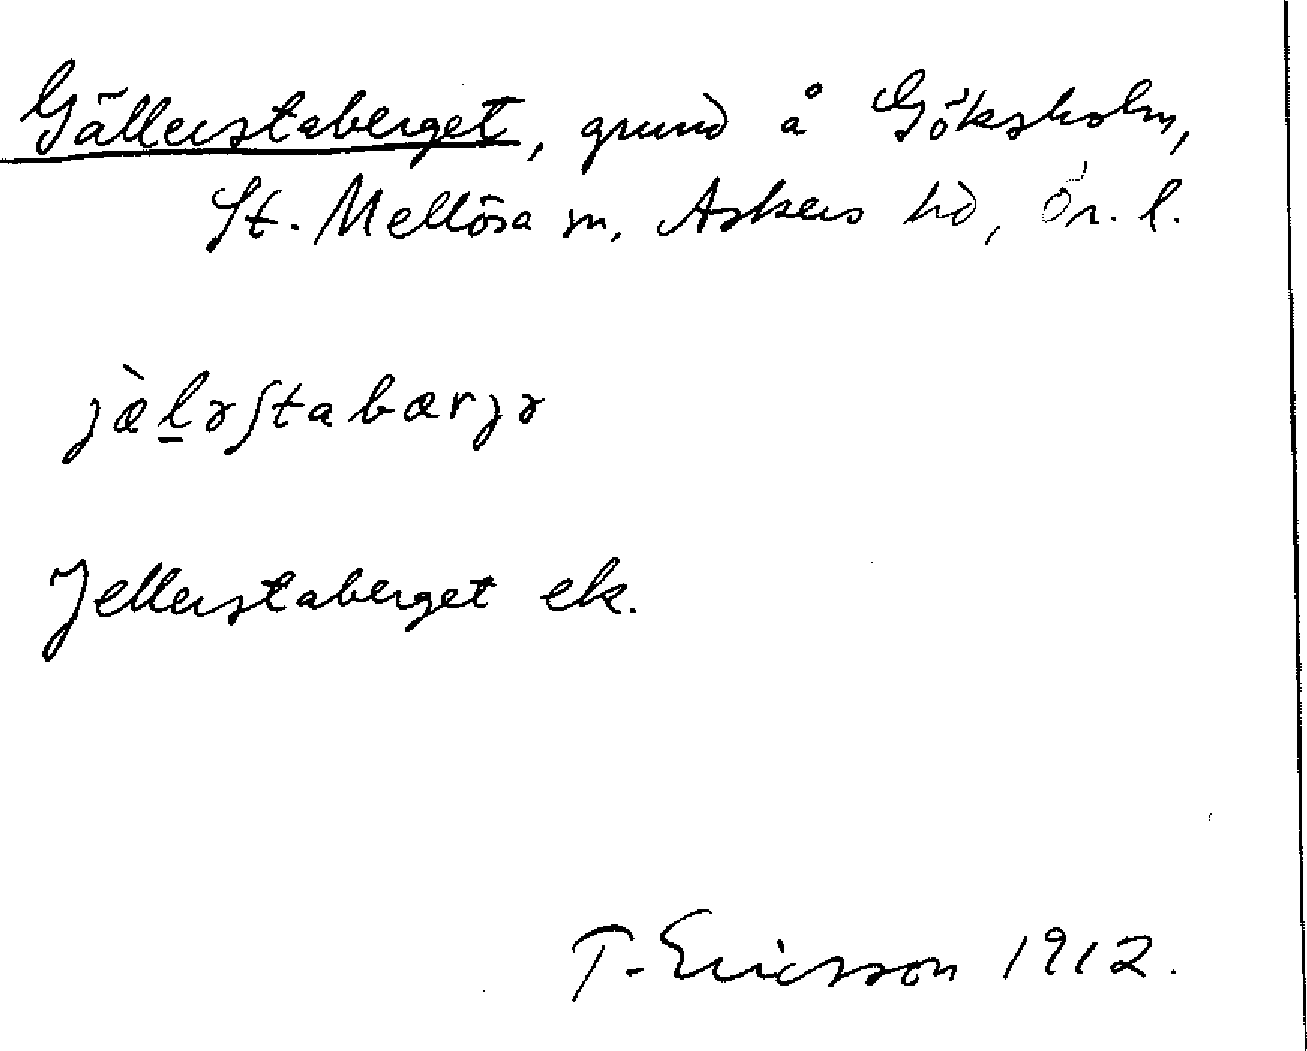 Gällerstaberget, grund å Göksholm,
St. Mellösa sn, Askers hd, Ör. l.
jæ̀l̲əʃtabærjə
Jellerstaberget ek.
T. Ericsson 1912.